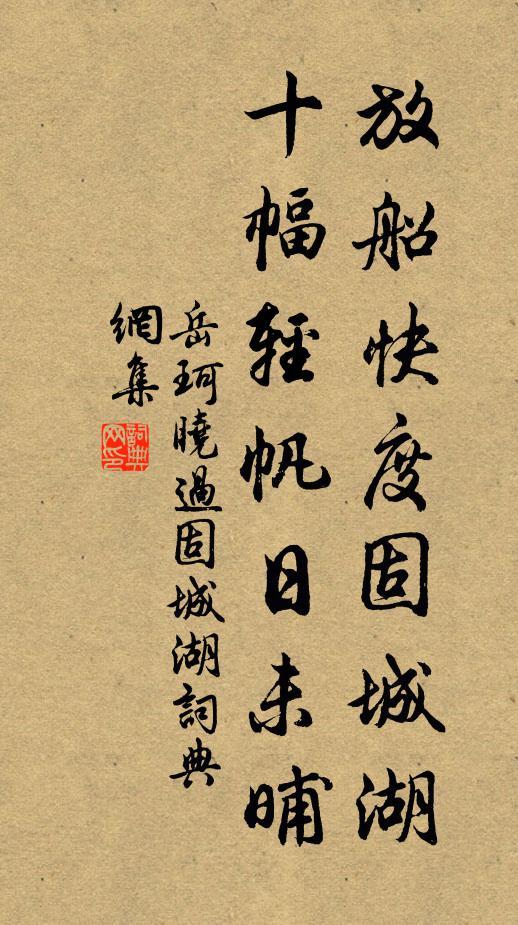 放船快度固城湖
十幅輕帆日未晡
岳珂曉過固城湖詞典
網集
詞典
网印